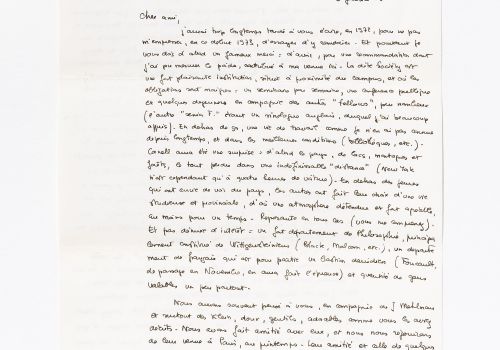 Cher ami,
j'aurai trop longtemps tardé à vous écrire, en 1972, pour ne pas
m'empresser, en ce début 1973, d'essayer d'y remédier. Et pourtant je
vous dois d'abord un fameux merci : d'avoir, par vos recommandations dont
j'ai pu mesurer le poids, contribué à ma venue ici. La dite Society est
une fort plaisante institution, située à proximité du campus, et où les
obligations sont maigres : un séminaire par semaine, une conférence publique
et quelques déjeuners en compagnie des autres "fellows", peu nombreux
(l'autre "senior F." étant un sinologue anglais, duquel j'ai beaucoup
appris). En dehors de ça, une vie de travail comme je n'en ai pas connue
depuis longtemps, et dans les meilleures conditions (bibliothèques, etc.).
Cornell aura été une surprise : d'abord le pays, de lacs, montagnes et
forêts, le tout perdu dans une indéfinissable "distance" (New York
n'est cependant qu'à quatre heures de voiture). En dehors des jeunes
qui ont envie de voir du pays, les autres ont fait leur choix d'une vie
studieuse et provinciale, d'où une atmosphère détendue et fort agréable,
au moins pour un temps. Reposante en tous cas (vous me comprenez).
Et pas dénuée d'intérêt : un fort département de Philosophie, principa-
lement constitué de Wittgensteiniens (Black, Malcolm, etc.), un départe-
ment de français qui est pour partie un bastion derridien (Foucault,
de passage en Novembre, en aura fait l'épreuve) et quantité de gens
valables un peu partout.
Nous avons souvent pensé à vous, en compagnie de J. Mehlman
et surtout des Klein, doux, gentils, adorables comme vous les aviez
décrits. Nous avons fait amitié avec eux, et nous nous réjouissons
de leur venue à Paris, au printemps. Leur amitié et celle de quelques